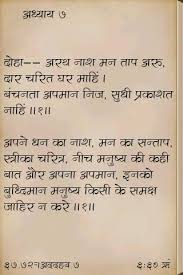 अध्याय ७
दोहा-- अरथ नाश मन ताप अरु,
दार चरित घर माहिं ।
बंचनता अपमान निज, सुधी प्रकाशत
नाहिं ॥१॥
अपने धन का नाश, मन का सन्ताप,
स्त्रीका चरित्र, नीच मनुष्य की कही
बात और अपना अपमान, इनको
बुध्दिमान मनुष्य किसी के समक्ष
जाहिर न करे ॥१॥